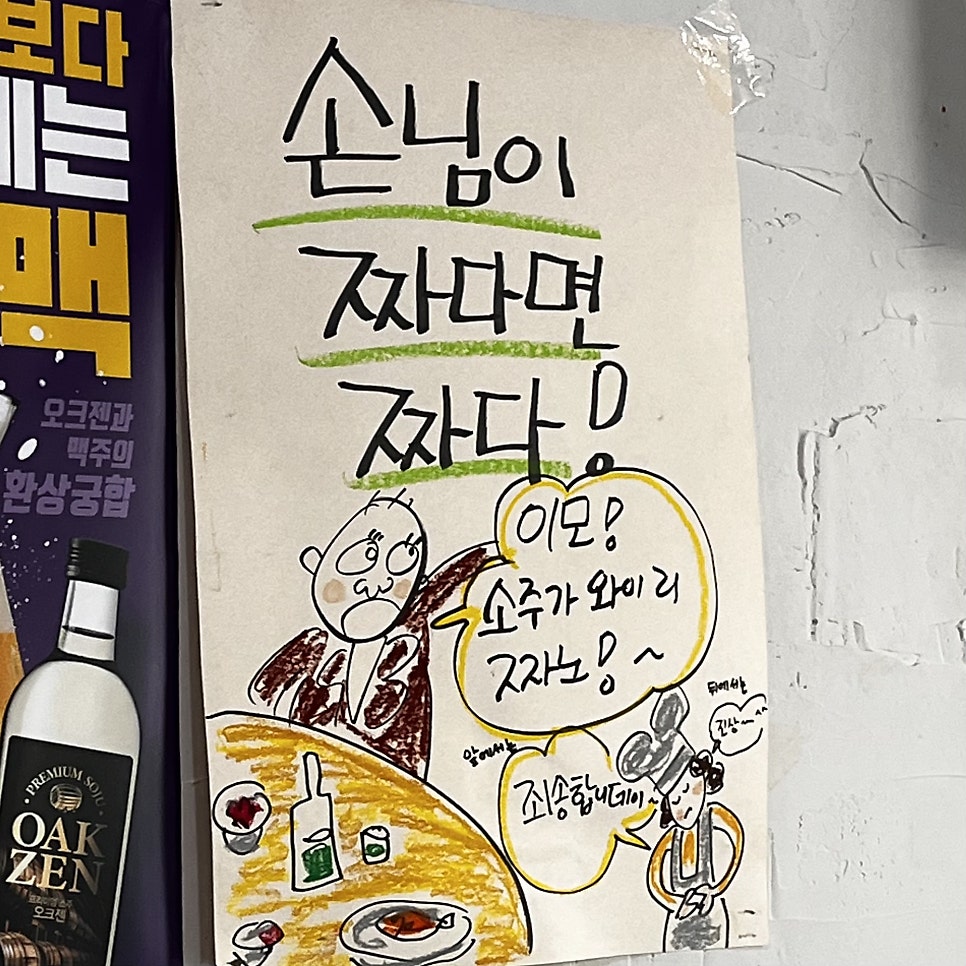 보다
는
맥
오크젠과
맥주의
환상궁합
PREMIUM SOJU
OAK
ZEN
오크젠
손님이
짜다면
짜다!
이모!
소주가 와이리
짜노! ~
뒤에서는
진상~ ^^
앞에서는
죄송합니데이~